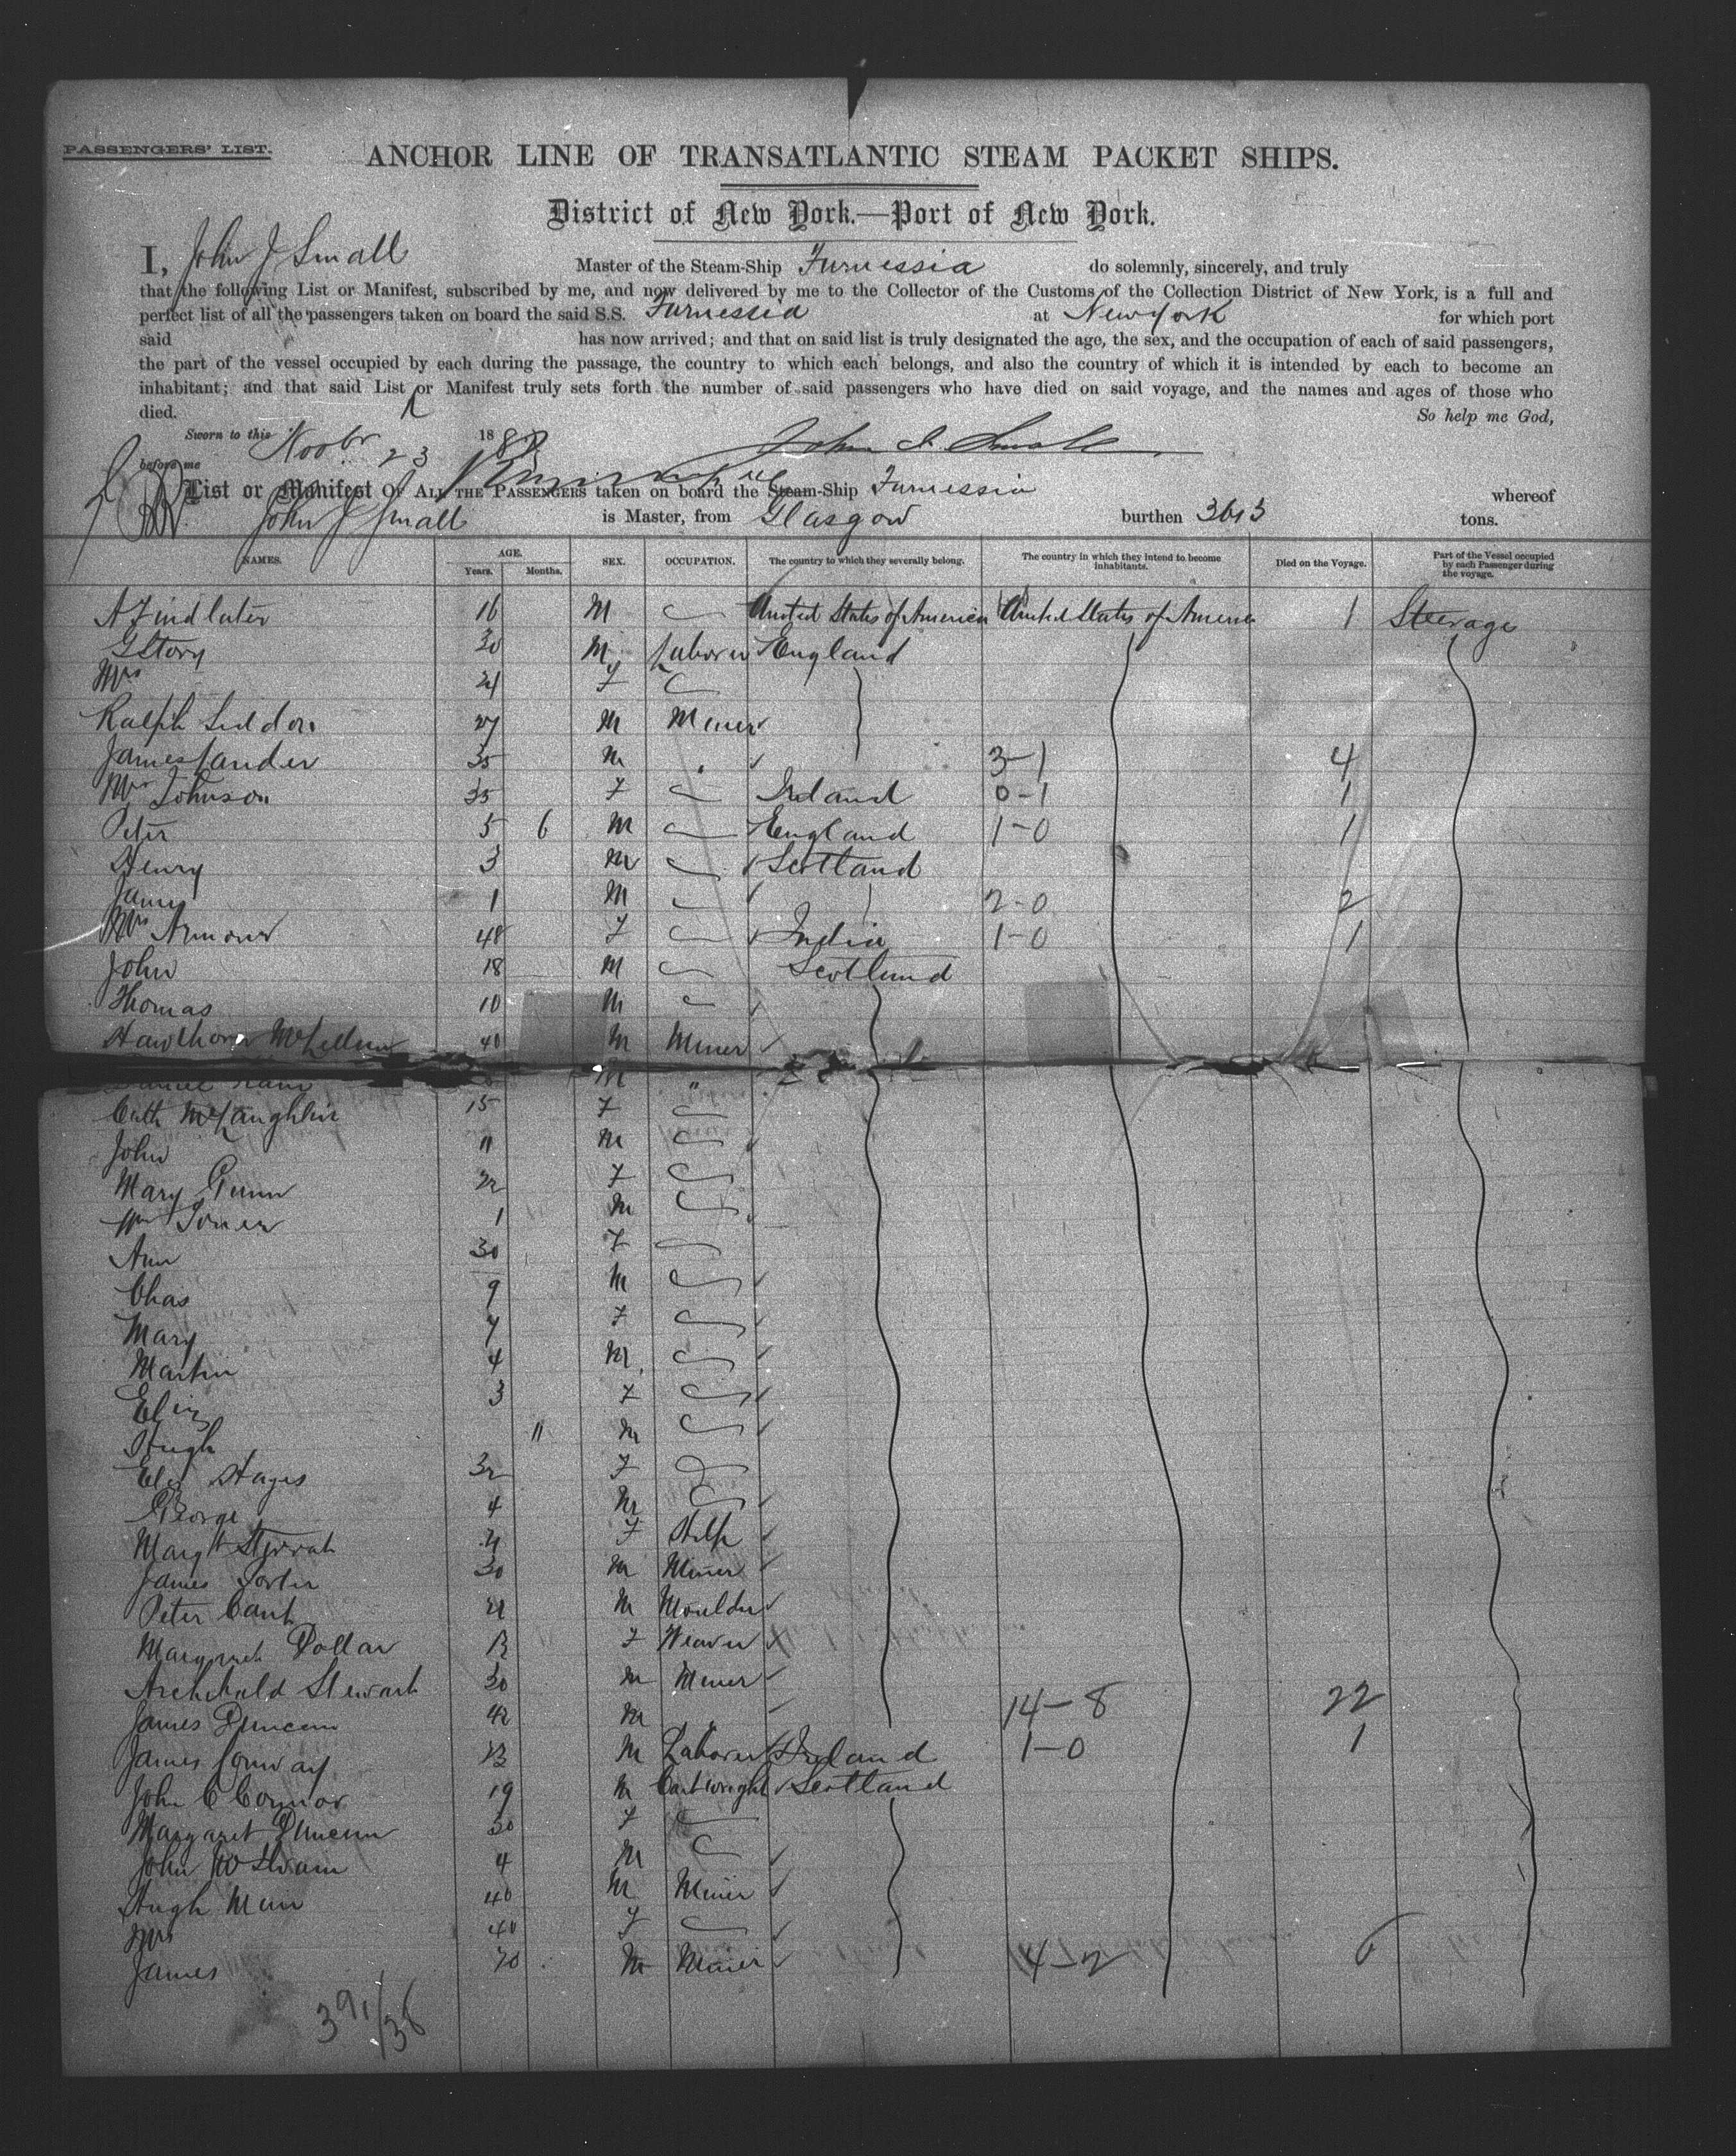 PASSENGERS' LIST.
ANCHOR LINE OF TRANSATLANTIC STEAM PACKET SHIPS.
District of New York.—Port of New York.
I, John J Small Master of the Steam-Ship Furnessia do solemnly, sincerely, and truly
that the following List or Manifest, subscribed by me, and now delivered by me to the Collector of the Customs of the Collection District of New York, is a full and
perfect list of all the passengers taken on board the said S.S. Furnessia at New York for which port
said has now arrived; and that on said list is truly designated the age, the sex, and the occupation of each of said passengers,
the part of the vessel occupied by each during the passage, the country to which each belongs, and also the country of which it is intended by each to become an
inhabitant; and that said List or Manifest truly sets forth the number of said passengers who have died on said voyage, and the names and ages of those who
died. So help me God,
Sworn to this Novbr 23 188 John J. Small
before me
List or Manifest OF ALL THE PASSENGERS taken on board the Steam-Ship Furnessia whereof
John J Small is Master, from Glasgow burthen 3613 tons.
NAMES. AGE. Years. Months. SEX. OCCUPATION. The country to which they severally belong. The country in which they intend to become inhabitants. Died on the Voyage. Part of the Vessel occupied by each Passenger during the voyage.
A Findlater 16 M United States of America United States of America 1 Steerage
G Story 30 M Laborer England
Mrs 21 F
Ralph Seddon 27 M Miner
James 35 M " 3-1 4
Mrs Johnson 35 F Ireland 0-1 1
Peter 5 6 M England 1-0 1
Henry 3 M Scotland
James 1 M 2-0 2
Mrs Armour 48 F India 1-0 1
John 18 M Scotland
Thomas 10 M
Hawthorn McLellan 40 M Miner
Daniel M "
Cath McLaughlin 15 F
John 11 M
Mary Gunn 22 F
Wm 1 M
Ann 30 F
Chas 9 M
Mary 7 F
Martin 4 M
Eliz 3 F
Hugh 11 M
Eliz Hayes 32 F
George 4 M
Margt F Help
James 30 M Miner
Peter Cant 21 M Moulder
Margaret Dollar F Weaver
Archibald Stewart 30 M Miner
James Duncan 42 M " 14-8 22
James Conway 23 M Laborer Ireland 1-0 1
John O Connor 19 M Cartwright Scotland
Margaret Duncan 30 F
John 4 M
Hugh Muir 40 M Miner
Mrs 40 F
James 20 M Miner 4-2 6
391/38